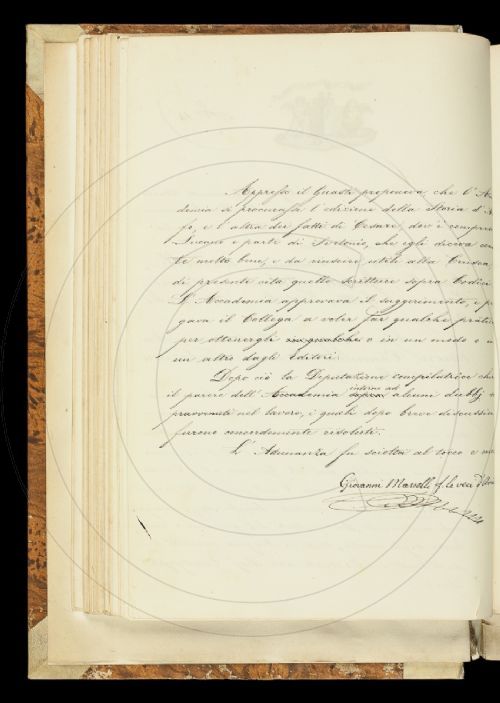 Appresso il Guasti proponeva, che l'Ac
demia si procurasse l'edizione della Storia d'A
fo, e l'altra dei fatti di Cesare, dov'è compreso
Lucano e parte di Svetonio, che egli diceva
te molto bene, e da riuscire utili alla Crusca
di presente cita quelle scritture sopra Codici
L'Accademia approvava il suggerimento, e p
gava il Collega a voler far qualche pratic
per ottenergli in qualche o in un modo o in
un altro dagli Editori.
Dopo ciò la Deputazione compilatrice chie
il parere dell'Accademia sopra intorno ad alcuni dubbj
provenuti nel lavoro, i quali dopo breve discussio
furono concordemente risoluti.
L'Adunanza fu sciolta al tocco e
Giovanni f. le veci d